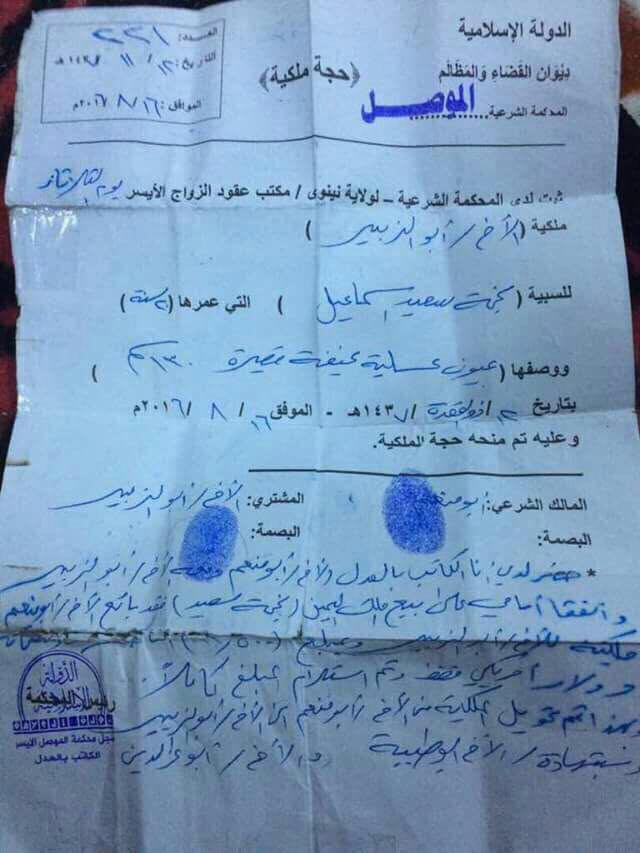 الدولة الإسلامية
ديوان القضاء والمظالم
المحكمة الشرعية: الموصل
﴿حجة ملكية﴾
العدد: ٢٣١
التاريخ: ١٢/ ١١/ ١٤٣٧هـ
الموافق: ١٦/ ٨/ ٢٠١٦م
ثبت لدى المحكمة الشرعية – لولاية نينوى / مكتب عقود الزواج الأيسر يوم
ملكية (الأخ / أبو الزبير)
للسبية (نجمة سعيد اسماعيل) التي عمرها (٢٠ سنة)
ووصفها (عيون عسلية نحيفة قصيرة ١٣٠ سم)
بتاريخ ١٢/ ذو القعدة/ ١٤٣٧هـ - الموافق ١٦/ ٨/ ٢٠١٦م
وعليه تم منحه حجة الملكية.
المالك الشرعي: أبو منعم المشتري: الأخ / أبو الزبير
البصمة: البصمة:
* حضر لدي أنا الكاتب بالعدل الأخ / أبو منعم ومعه الأخ / أبو الزبير
واتفقا أمامي على بيع ملك اليمين (نجمة سعيد) فقد باع الأخ / أبو منعم
ملكيته للأخ / أبو الزبير وبمبلغ
دولار أمريكي فقط وتم استلام المبلغ كاملاً.
وبهذا تم تحويل الملكية من الأخ / أبو منعم الى الأخ / أبو الزبير
وبشهادة / الأخ و الأخ / أبو عز الدين
الدولة الإسلامية
سجل محكمة الموصل الأيسر
الكاتب بالعدل